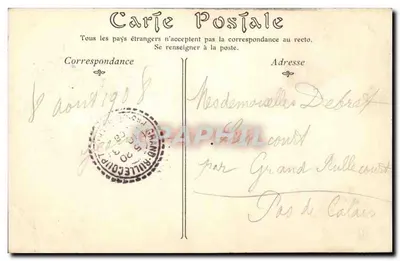 Carte Postale
Tous les pays étrangers n'acceptent pas la correspondance au recto.
Se renseigner à la poste.
Correspondance
Adresse
8 août 1908
Mesdemoiselles
par Grand Rullecourt
Pas de Calais
GRAND-RULLECOURT